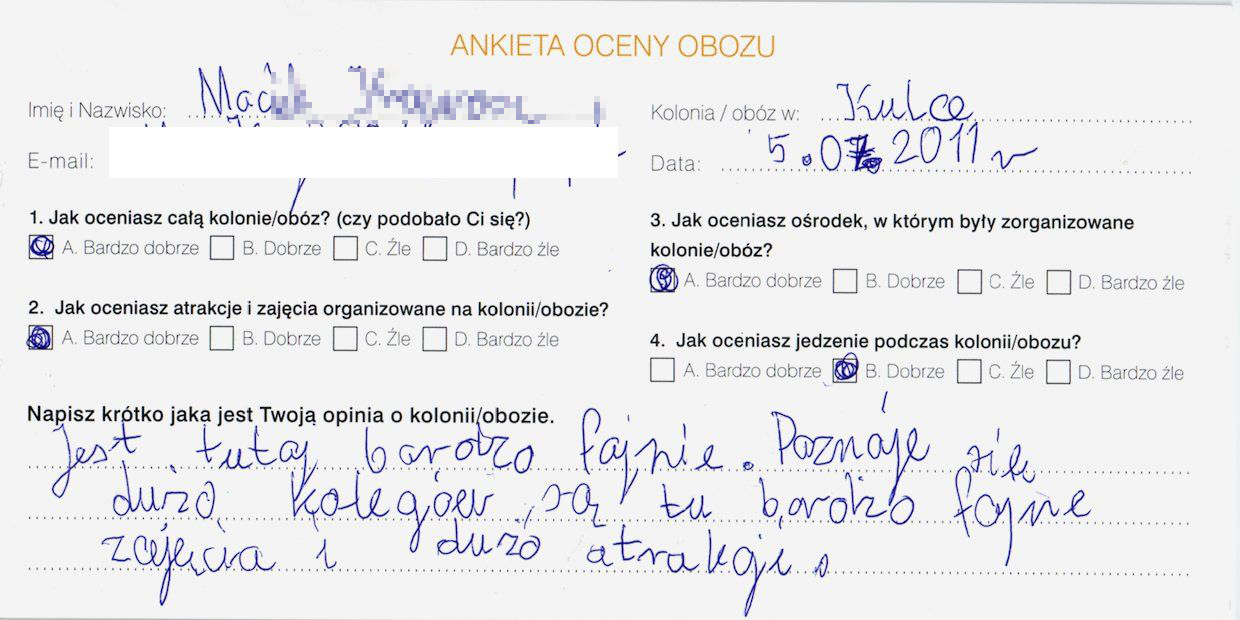 ANKIETA OCENY OBOZU
Imię i Nazwisko:
Kolonia / obóz w: Kulce
E-mail:
Data: 5.07.2011 r
1. Jak oceniasz całą kolonie/obóz? (czy podobało Ci się?)
A. Bardzo dobrze B. Dobrze C. Źle D. Bardzo źle
2. Jak oceniasz atrakcje i zajęcia organizowane na kolonii/obozie?
A. Bardzo dobrze B. Dobrze C. Źle D. Bardzo źle
3. Jak oceniasz ośrodek, w którym były zorganizowane
kolonie/obóz?
A. Bardzo dobrze B. Dobrze C. Źle D. Bardzo źle
4. Jak oceniasz jedzenie podczas kolonii/obozu?
A. Bardzo dobrze B. Dobrze C. Źle D. Bardzo źle
Napisz krótko jaka jest Twoją opinia o kolonii/obozie.
Jest tutaj bardzo fajnie. Poznaję się
dużo kolegów, są tu bardzo fajne
zajęcia i dużo atrakcji.